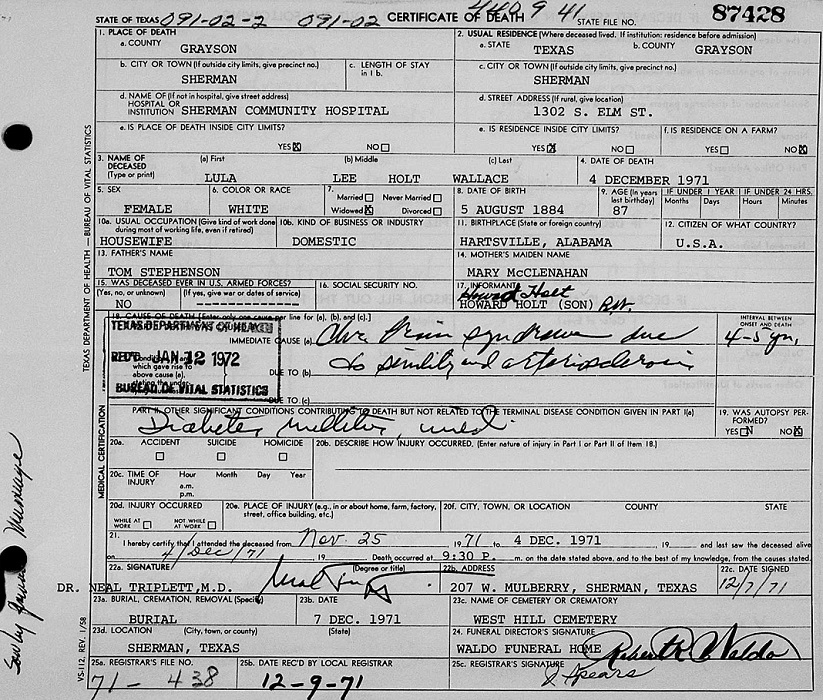 440.9 41
STATE OF TEXAS 091-02-2 091-02 CERTIFICATE OF DEATH STATE FILE NO. 87428
1. PLACE OF DEATH
a. COUNTY
GRAYSON
2. USUAL RESIDENCE (Where deceased lived. If institution: residence before admission)
a. STATE TEXAS b. COUNTY GRAYSON
b. CITY OR TOWN (If outside city limits, give precinct no.)
SHERMAN
c. LENGTH OF STAY
in 1 b.
c. CITY OR TOWN (If outside city limits, give precinct no.)
SHERMAN
d. NAME OF (If not in hospital, give street address)
HOSPITAL OR
INSTITUTION SHERMAN COMMUNITY HOSPITAL
d. STREET ADDRESS (If rural, give location)
1302 S. ELM ST.
e. IS PLACE OF DEATH INSIDE CITY LIMITS?
YES X NO
e. IS RESIDENCE INSIDE CITY LIMITS?
YES X NO
f. IS RESIDENCE ON A FARM?
YES NO X
3. NAME OF
DECEASED
(Type or print)
(a) First (b) Middle (c) Last
LULA LEE HOLT WALLACE
4. DATE OF DEATH
4 DECEMBER 1971
5. SEX
FEMALE
6. COLOR OR RACE
WHITE
7.
Married Never Married
Widowed X Divorced
8. DATE OF BIRTH
5 AUGUST 1884
9. AGE (In years
last birthday)
87
IF UNDER 1 YEAR
Months Days
IF UNDER 24 HRS.
Hours Minutes
10a. USUAL OCCUPATION (Give kind of work done
during most of working life, even if retired)
HOUSEWIFE
10b. KIND OF BUSINESS OR INDUSTRY
DOMESTIC
11. BIRTHPLACE (State or foreign country)
HARTSVILLE, ALABAMA
12. CITIZEN OF WHAT COUNTRY?
U.S.A.
13. FATHER'S NAME
TOM STEPHENSON
14. MOTHER'S MAIDEN NAME
MARY McCLENAHAN
15. WAS DECEASED EVER IN U.S. ARMED FORCES?
(Yes, no, or unknown) (If yes, give war or dates of service)
NO -------------
16. SOCIAL SECURITY NO.
17. INFORMANT
Howard Holt
HOWARD HOLT (SON)
18. CAUSE OF DEATH [Enter only one cause per line for (a), (b), and (c).]
INTERVAL BETWEEN
ONSET AND DEATH
TEXAS DEPARTMENT OF HEALTH
REC'D JAN 12 1972
BUREAU OF VITAL STATISTICS
IMMEDIATE CAUSE (a) Chr. brain syndrome due 4-5 yr.
Conditions
which gave rise to
above cause (a),
stating the under-
DUE TO (b) to senility and arteriosclerosis
DUE TO (c)
PART II. OTHER SIGNIFICANT CONDITIONS CONTRIBUTING TO DEATH BUT NOT RELATED TO THE TERMINAL DISEASE CONDITION GIVEN IN PART I(a)
Diabetes mellitus, mild
19. WAS AUTOPSY PER-
FORMED?
YES NO X
20a. ACCIDENT SUICIDE HOMICIDE
20b. DESCRIBE HOW INJURY OCCURRED. (Enter nature of injury in Part I or Part II of Item 18.)
20c. TIME OF
INJURY
Hour Month Day Year
a.m.
p.m.
20d. INJURY OCCURRED
WHILE AT
WORK
NOT WHILE
AT WORK
20e. PLACE OF INJURY (e.g., in or about home, farm, factory,
street, office building, etc.)
20f. CITY, TOWN, OR LOCATION COUNTY STATE
21.
I hereby certify that I attended the deceased from Nov. 25 1971 to 4 DEC. 1971 19 and last saw the deceased alive
on 4/Dec/71 19 Death occurred at 9:30 P. m. on the date stated above, and to the best of my knowledge, from the causes stated.
22a. SIGNATURE (Degree or title)
DR. NEAL TRIPLETT, M.D.
22b. ADDRESS
207 W. MULBERRY, SHERMAN, TEXAS
22c. DATE SIGNED
12/7/71
23a. BURIAL, CREMATION, REMOVAL (Specify)
BURIAL
23b. DATE
7 DEC. 1971
23c. NAME OF CEMETERY OR CREMATORY
WEST HILL CEMETERY
23d. LOCATION (City, town, or county) (State)
SHERMAN, TEXAS
24. FUNERAL DIRECTOR'S SIGNATURE
WALDO FUNERAL HOME Robert R. Waldo
25a. REGISTRAR'S FILE NO.
71- 438
25b. DATE REC'D BY LOCAL REGISTRAR
12-9-71
25c. REGISTRAR'S SIGNATURE
J Spears
TEXAS DEPARTMENT OF HEALTH — BUREAU OF VITAL STATISTICS
MEDICAL CERTIFICATION
VS-112, REV. 1/58